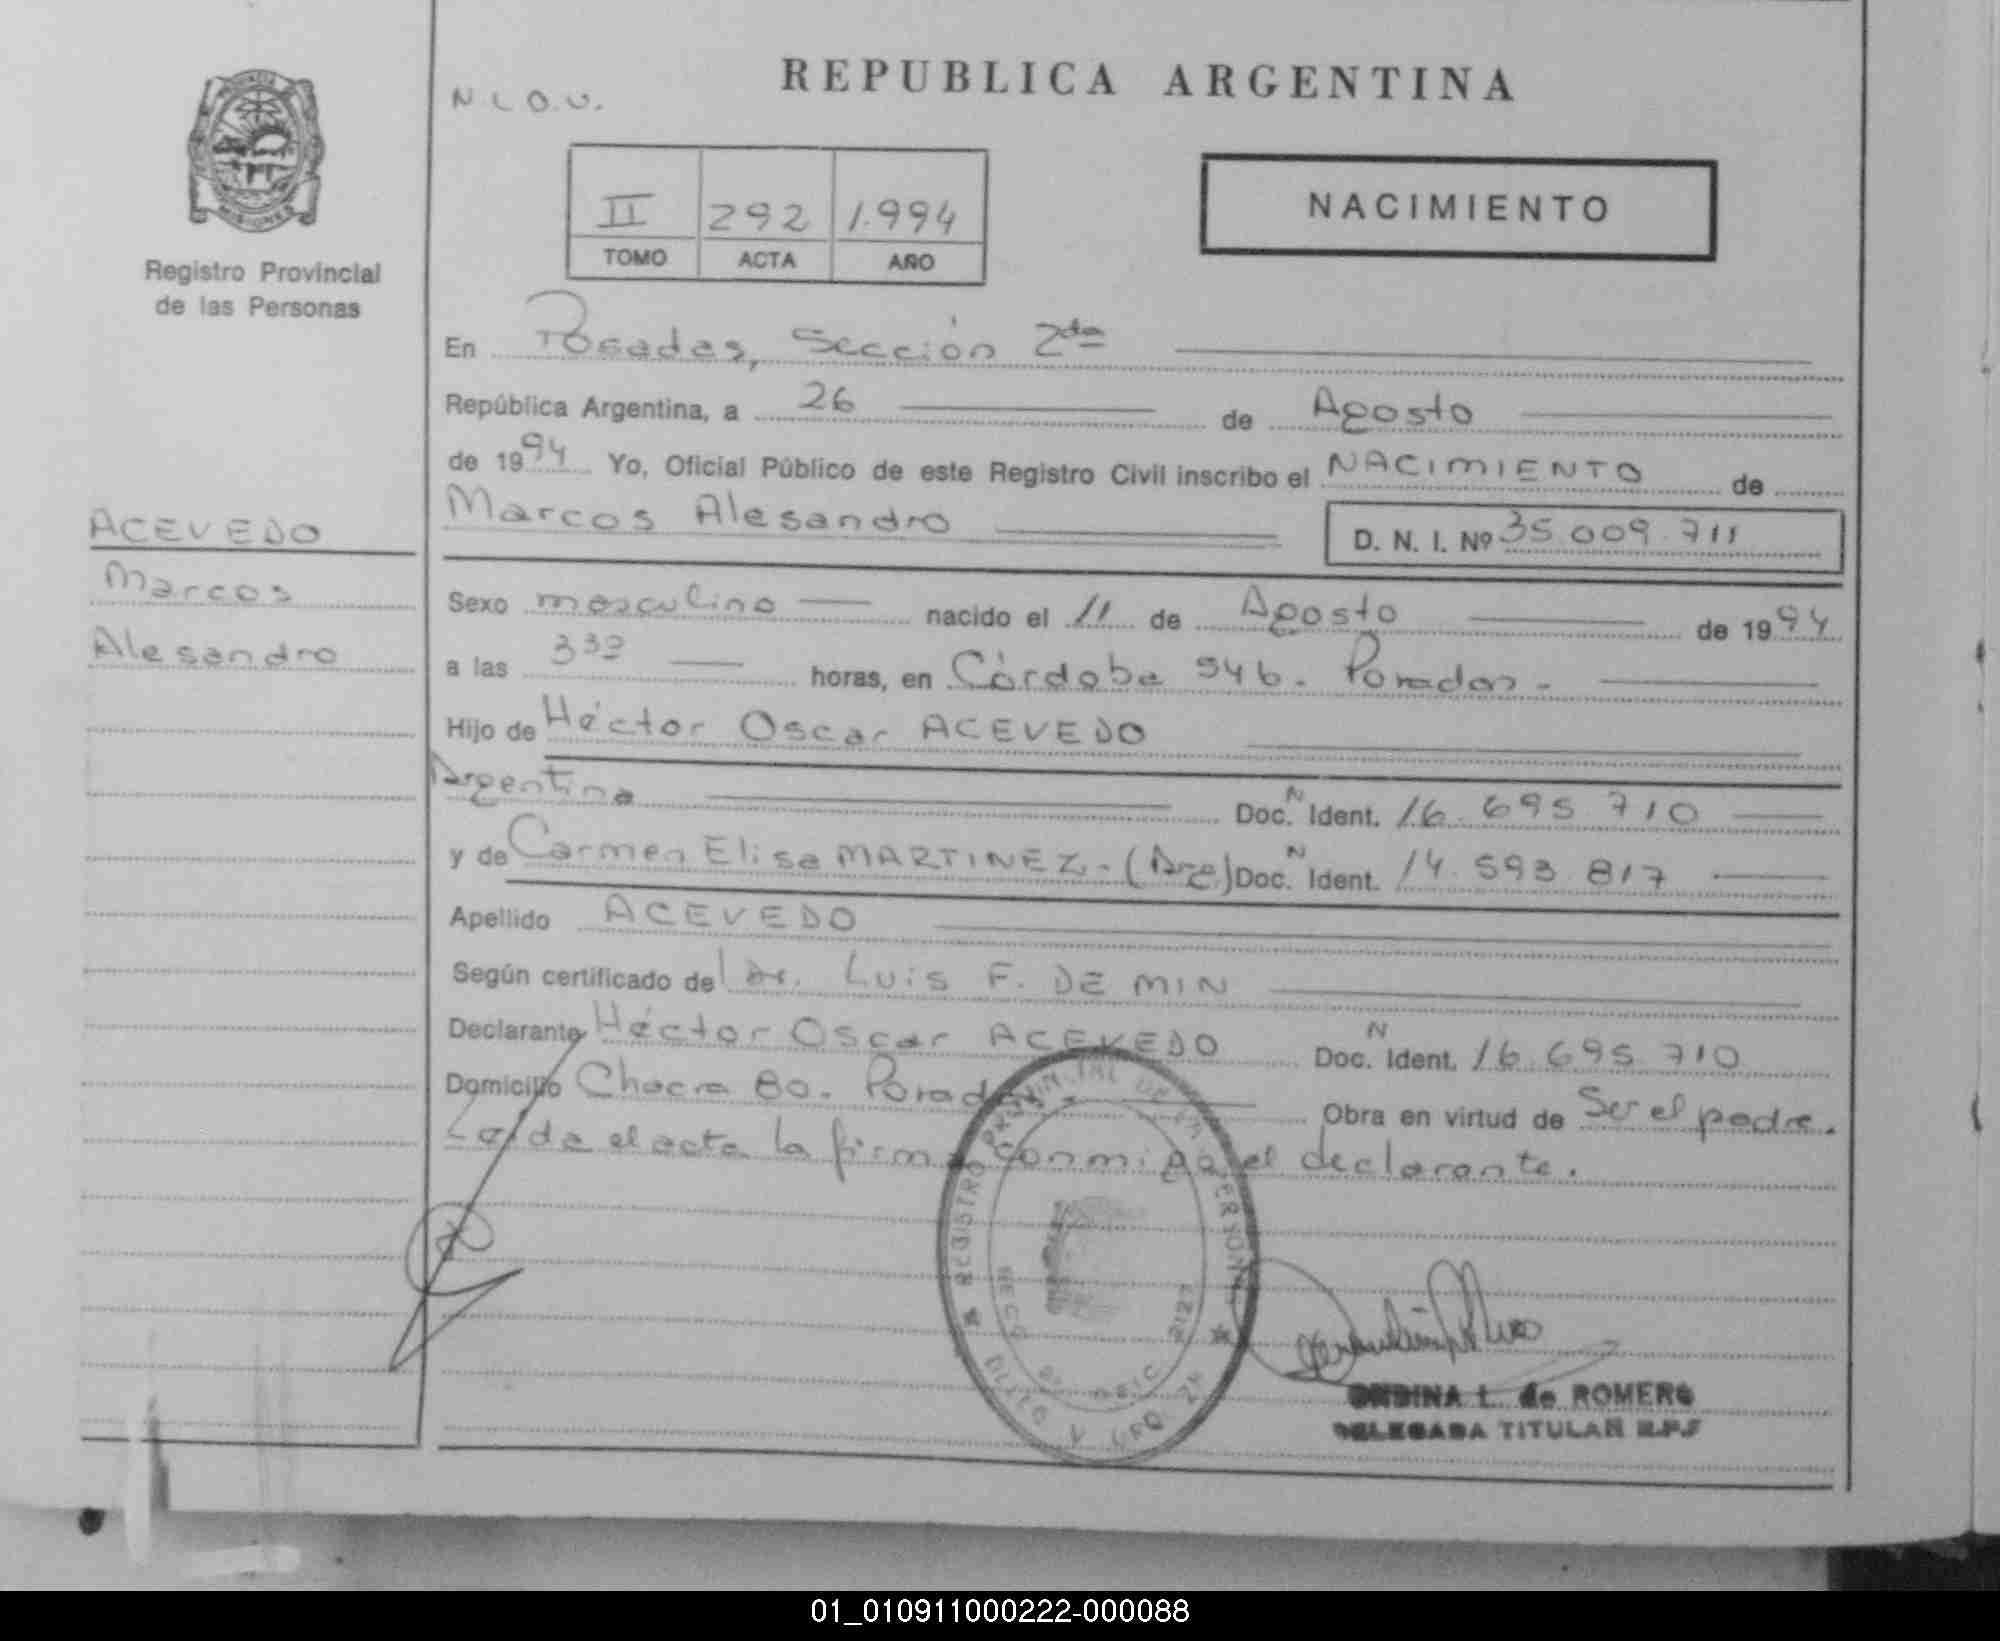 REPUBLICA ARGENTINA
N L O.U.
II 292 1.994
TOMO ACTA AÑO
NACIMIENTO
MISIONES
Registro Provincial
de las Personas
ACEVEDO
Marcos
Alesandro
En Posadas, Sección 2da
República Argentina, a 26 de Agosto
de 1994 Yo, Oficial Público de este Registro Civil inscribo el NACIMIENTO de
Marcos Alesandro D. N. I. Nº 35.009.711
Sexo masculino nacido el 11 de Agosto de 1994
a las 3 30 horas, en Córdoba 946. Posadas.-
Hijo de Héctor Oscar ACEVEDO
Argentina Doc. N Ident. 16.695.710
y de Carmen Elisa MARTINEZ.- (Arg) Doc. N Ident. 14.593.817
Apellido ACEVEDO
Según certificado de Dr. Luis F. DE MIN
Declarante Héctor Oscar ACEVEDO Doc. N Ident. 16.695.710
Domicilio Chacra 80. Posadas.- Obra en virtud de Ser el padre.
Leída el acta la firma conmigo el declarante.
REGISTRO PROVINCIAL DE LAS PERSONAS
ONDINA L. de ROMERO
DELEGADA TITULAR R.P.S
01_010911000222-000088